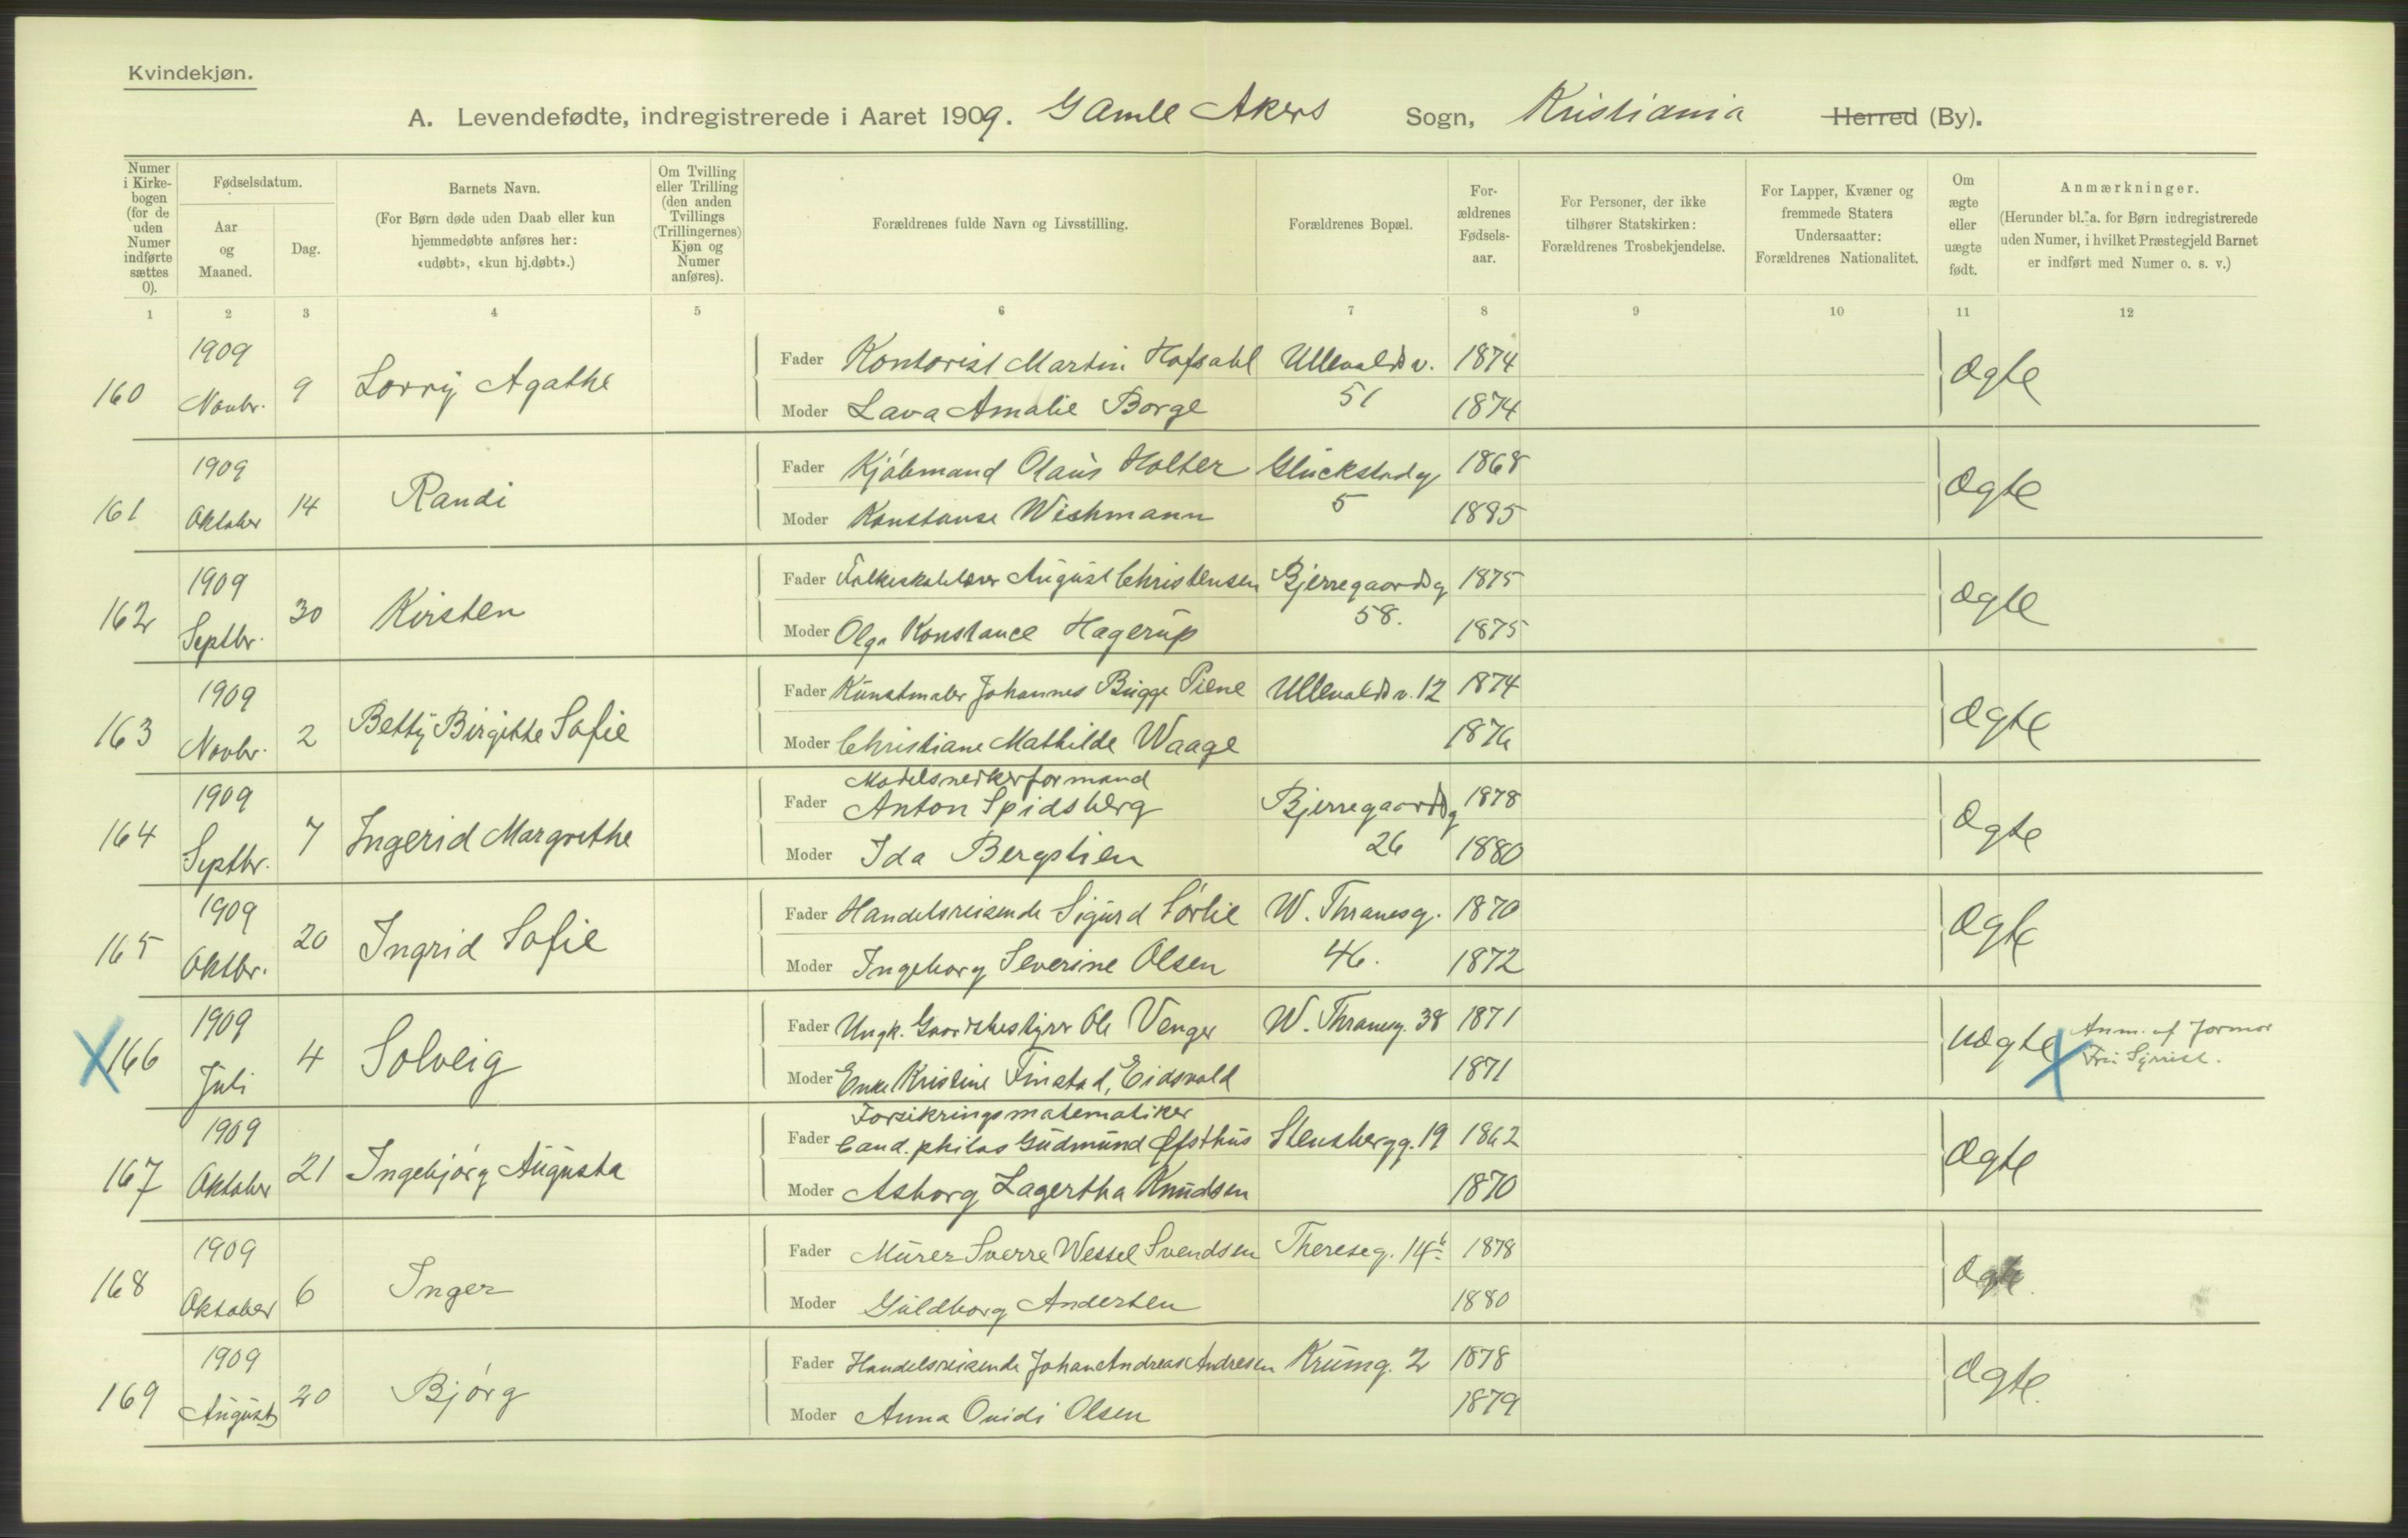 Kvindekjøn.
A. Levendefødte, indregistrerede i Aaret 1909. Gamle Akers Sogn, Kristiania Herred (By).
Numer i Kirkebogen (for de uden Numer indførte sættes 0).
Fødselsdatum.
Aar og Maaned.
Dag.
Barnets Navn.
(For Børn døde uden Daab eller kun hjemmedøbte anføres her: «udøbt», «kun hj.døbt».)
Om Tvilling eller Trilling (den anden Tvillings (Trillingernes) Kjøn og Numer anføres).
Forældrenes fulde Navn og Livsstilling.
Forældrenes Bopæl.
Forældrenes Fødselsaar.
For Personer, der ikke tilhører Statskirken: Forældrenes Trosbekjendelse.
For Lapper, Kvæner og fremmede Staters Undersaatter: Forældrenes Nationalitet.
Om ægte eller uægte født.
Anmærkninger.
(Herunder bl. a. for Børn indregistrerede uden Numer, i hvilket Præstegjeld Barnet er indført med Numer o. s. v.)
1 2 3 4 5 6 7 8 9 10 11 12
160 1909 Novbr. 9 Lorry Agathe Fader Kontorist Martin Hofsahl Ullevaldsv. 1874 Ægte
Moder Lava Amalie Borge 51 1874
161 1909 Oktober 14 Randi Fader Kjøbmand Olaus Holter Glückstadg 1868 Ægte
Moder Konstanse Wichmann 5 1885
162 1909 Septbr. 30 Kirsten Fader Folkeskolelærer August Christensen Bjerregaardsg 1875 Ægte
Moder Olga Konstance Hagerup 58. 1875
163 1909 Novbr. 2 Betty Birgitte Sofie Fader Kunstmaler Johannes Bugge Piene Ullevaldsv. 12 1874 Ægte
Moder Christiane Mathilde Waage 1876
Modelsnedkerformand
164 1909 Septbr. 7 Ingerid Margrethe Fader Anton Spidsberg Bjerregaardsg 1878 Ægte
Moder Ida Bergslien 26 1880
165 1909 Oktbr. 20 Ingrid Sofie Fader Handelsreisende Sigurd Sørlie W. Thranesg. 1870 Ægte
Moder Ingeborg Severine Olsen 46. 1872
166 1909 Juli 4 Solveig Fader Ungk. Gaardsbestyrer Ole Venger W. Thranesg. 38 1871 Uægte Anm. af Jormor
Moder Enke Kristine Finstad, Eidsvold 1871 Fru
Forsikringsmatematiker
167 1909 Oktober 21 Ingebjørg Augusta Fader Cand. philos Gudmund Ofsthus Stensbergg. 19 1862 Ægte
Moder Asborg Lagertha Knudsen 1870
168 1909 Oktober 6 Inger Fader Murer Sverre Wessel Svendsen Thereseg. 14b 1878 Ægte.
Moder Guldborg Andersen 1880
169 1909 August 20 Bjørg Fader Handelsreisende Johan Andreas Andresen Krumg. 2 1878 Ægte.
Moder Anna Ovidi Olsen 1879